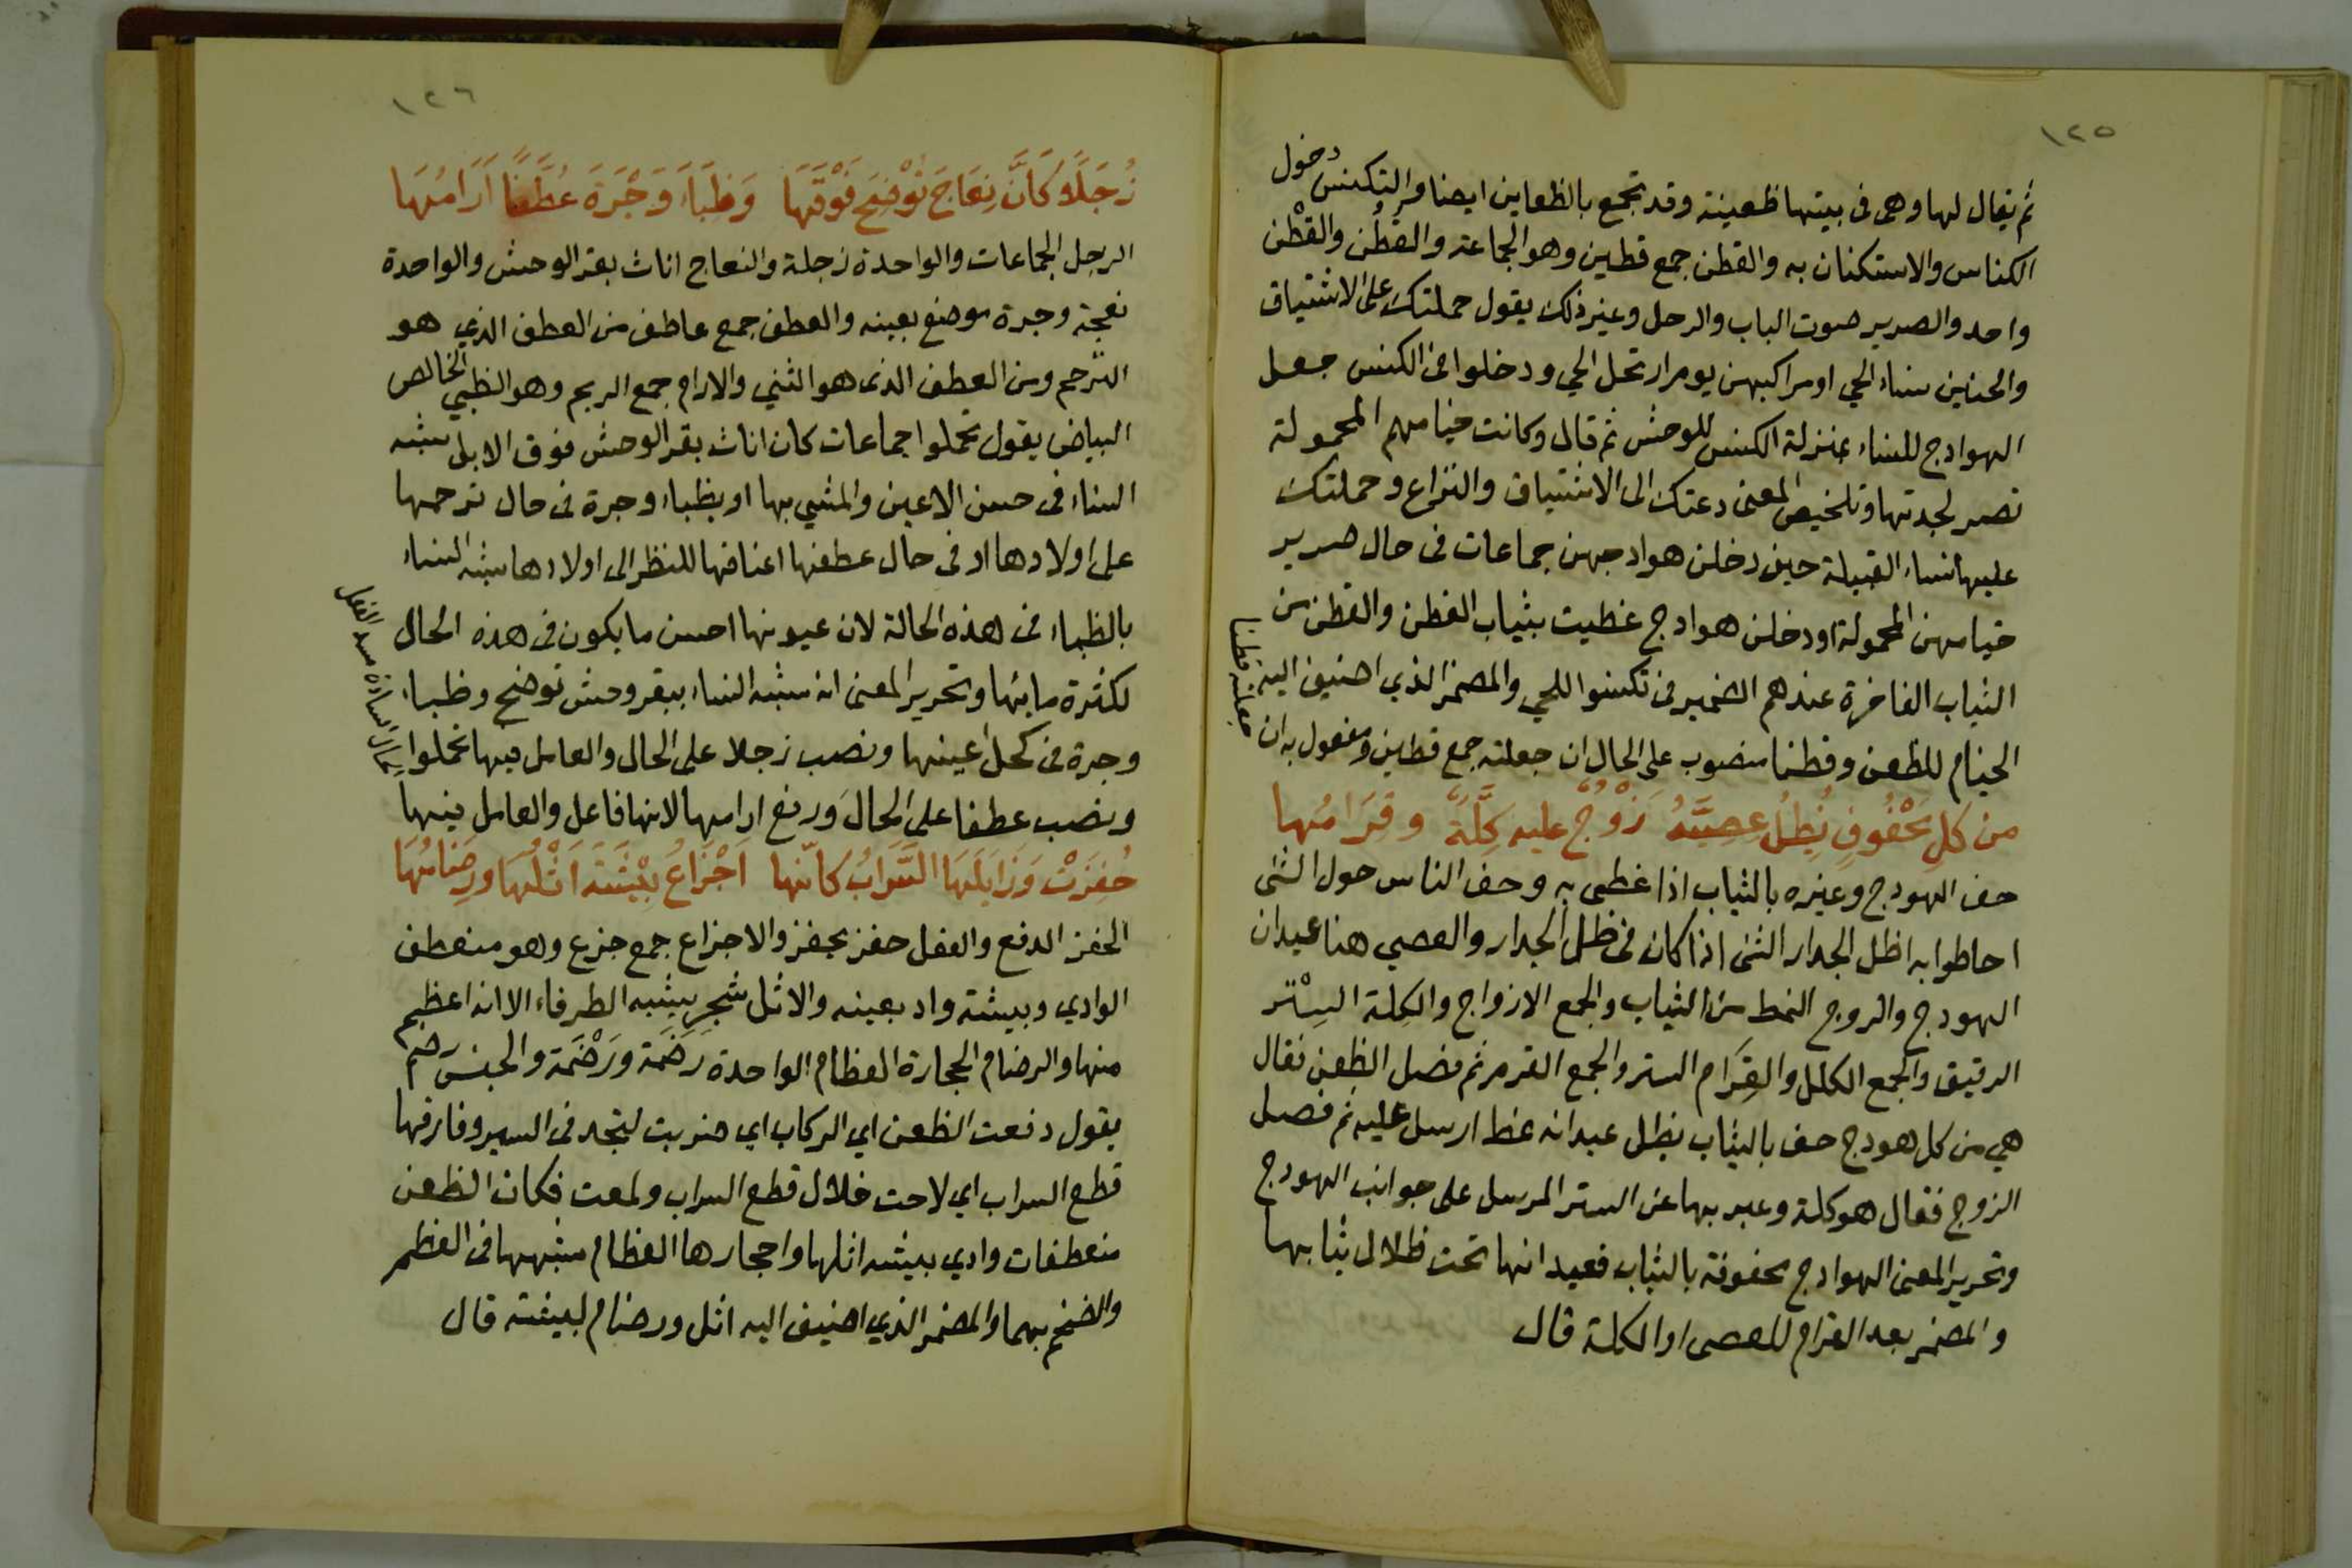 ١٢٥
ثم يقال لها وهى فى بيتها ظعينة وقد تجمع بالظعاين ايضا والتكنس دخول
الكناس والاستكنان به والقطن جمع قطين وهو الجماعة والقطُن والقطْن
واحد والصرير صوت الباب والرحل وغير ذلك يقول حملتك على الاشتياق
والحنين نساء الحي او مراكبهن يوم ارتحل الحي ودخلوا فى الكنس جعل
الهوادج للنساء بمنزلة الكنس للوحش ثم قال وكانت خيامهم المحمولة
تصر لجدتها وتلخيص المعنى دعتك الى الاشتياق والنزاع وحملتك
عليها نساء القبيلة حين دخلن هوادجهن جماعات فى حال صرير
خيامهن المحمولة او دخلن هوادج غطيت بثياب القطن والقطن من
الثياب الفاخرة عندهم الضمير فى تكنسوا للحي والمضمر الذي اضيف اليه
الخيام للظعن وقطنا منصوب على الحال ان جعلته جمع قطين ومفعول به ان
جعلته قطنا
من كل مَحْفُوفٍ يُظِلُّ عِصِيَّهُ زَوْجٌ عليه كِلَّةٌ وقِرَامُها
حف الهودج وغيره بالثياب اذا غطى به وحف الناس حول الشى
احاطوا به اظل الجدار الشى اذا كان فى ظل الجدار والعصي هنا عيدان
الهودج والزوج النمط من الثياب والجمع الازواج والكِلة السِتْر
الرقيق والجمع الكلل والقِرَام الستر والجمع القرم ثم فصل الظعن فقال
هي من كل هودج حف بالثياب يظل عيدانه نمط ارسل عليه ثم فصل
الزوج فقال هو كلة وعبر بها عن الستر المرسل على جوانب الهودج
وتحرير المعنى الهوادج محفوفة بالثياب فعيدانها تحت ظلال ثيابها
والمضمر بعد القرام للعصى او الكلة قال
١٢٦
زُجَلًا كَأَنَّ نِعَاجَ تُوْضِحَ فَوْقَهَا وَظِبَاءَ وَجْرَةَ عُطَّفًا اَرَامُهَا
الزجل الجماعات والواحدة زجلة والنعاج اناث بقر الوحش والواحدة
نعجة وجرة موضع بعينه والعطف جمع عاطف من العطف الذي هو
الترحم ومن العطف الذى هو الثني والارام جمع الريم وهو الظبي الخالص
البياض يقول تحملوا جماعات كان اناث بقر الوحش فوق الابل شبه
النساء فى حسن الاعين والمشي بها او بظباء وجرة فى حال ترحمها
على اولادها او فى حال عطفها اعناقها للنظر الى اولادها شبه النساء
بالظباء فى هذه الحالة لان عيونها احسن ما يكون فى هذه الحال
لكثرة مائها وتحرير المعنى انه شبه النساء ببقر وحش توضح وظباء
وجرة فى كحل اعينها ونصب زجلا على الحال والعامل فيها تحملوا
ونصب عطفا على الحال ورفع ارامها لانها فاعل والعامل فيها
حُفِزَتْ وَزَايَلَهَا السَّرَابُ كانّها اَجْزَاعُ بِيْشَةَ اَثْلُهَا ورِضَامُهَا
الحفز الدفع والفعل حفز يحفز والاجزاع جمع جزع وهو منعطف
الوادي وبيشة واد بعينه والاثل شجر يشبه الطرفاء الا انه اعظم
منها والرضام الحجارة العظام الواحدة رَضَمة ورَضْمَة والجنس رضم
يقول دفعت الظعن اي الركاب اي ضربت لتجد فى السير وفارقها
قطع السراب اي لاحت خلال قطع السراب ولمعت فكان الظعن
منعطفات وادي بيشه اثلها واحجارها العظام شبهها فى العظم
والضخم بهما والمضمر الذي اضيف اليه اثل ورضام لبيشة قال